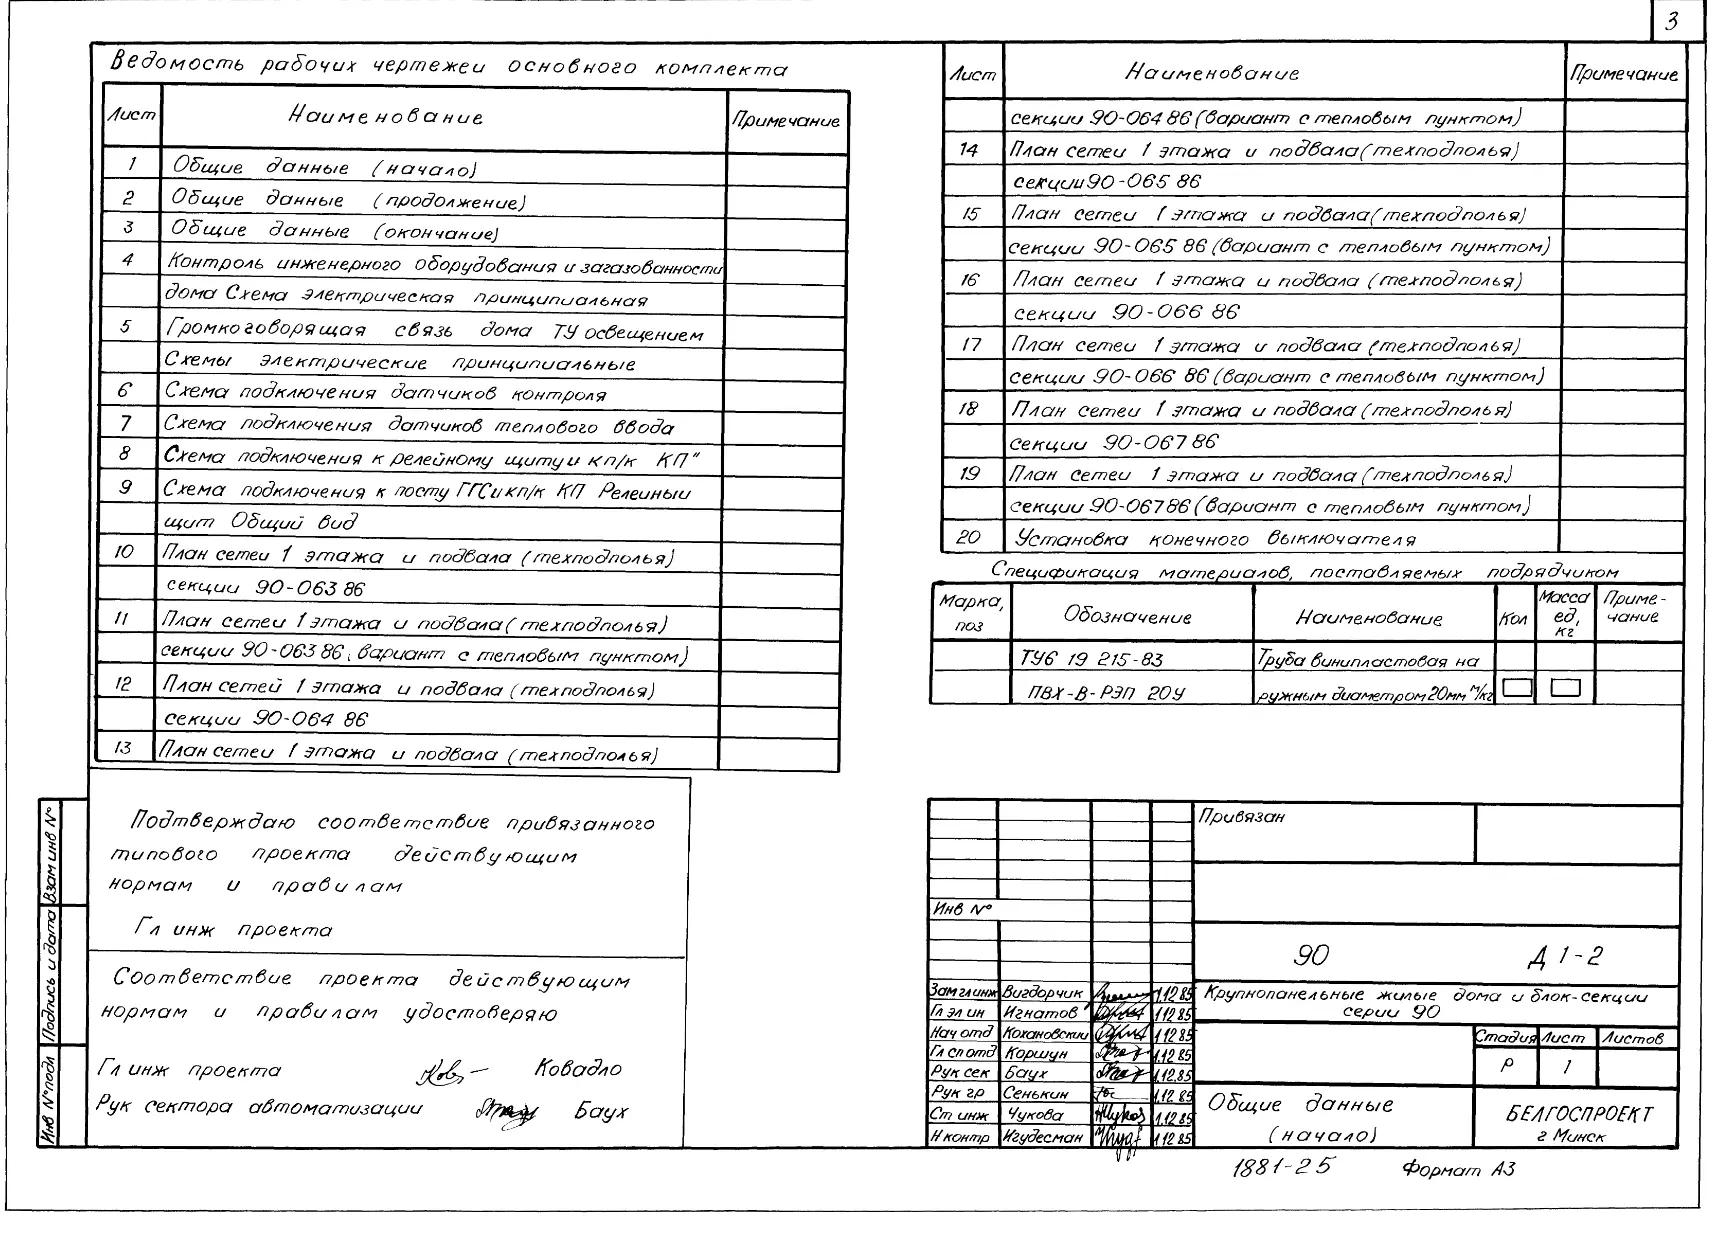 3
Ведомость рабочих чертежеи основного комплекта
Лист Наименование Примечание
1 Общие данные (начало)
2 Общие данные (продолжение)
3 Общие данные (окончание)
4 Контроль инженерного оборудования и загазованности
дома Схема электрическая принципиальная
5 Громкоговорящая связь дома ТУ освещением
Схемы электрические принципиальные
6 Схема подключения датчиков контроля
7 Схема подключения датчиков теплового ввода
8 Схема подключения к релейному щиту и кп/к КП"
9 Схема подключения к посту ГГС и кп/к КП Релеиныи
щит Общий вид
10 План сетеи 1 этажа и подвала (техподполья)
секции 90-063 86
11 План сетеи 1 этажа и подвала (техподполья)
секции 90-063 86 (вариант с тепловым пунктом)
12 План сетей 1 этажа и подвала (техподполья)
секции 90-064 86
13 План сетеи 1 этажа и подвала (техподполья)
Лист Наименование Примечание
секции 90-064 86 (вариант с тепловым пунктом)
14 План сетеи 1 этажа и подвала (техподполья)
секции 90-065 86
15 План сетеи 1 этажа и подвала (техподполья)
секции 90-065 86 (вариант с тепловым пунктом)
16 План сетеи 1 этажа и подвала (техподполья)
секции 90-066 86
17 План сетеи 1 этажа и подвала (техподполья)
секции 90-066 86 (вариант с тепловым пунктом)
18 План сетеи 1 этажа и подвала (техподполья)
секции 90-067 86
19 План сетеи 1 этажа и подвала (техподполья)
секции 90-067 86 (вариант с тепловым пунктом)
20 Установка конечного выключателя
Спецификация материалов, поставляемых подрядчиком
Марка, поз Обозначение Наименование Кол Масса ед, кг Приме-чание
ТУ6 19 215-83 Труба винипластовая на
ПВХ-В-РЭП 20У ружным диаметром 20мм м/кг
Подтверждаю соответствие привязанного
типового проекта действующим
нормам и правилам
Гл инж проекта
Соответствие проекта действующим
нормам и правилам удостоверяю
Гл инж проекта Ковадло
Рук сектора автоматизации Баух
Взам инв N°
Подпись и дата
Инв N° подл
Привязан
Инв N°
90 Д 1-2
Зам гл инж Вигдорчик 1.12 85
Гл эл ин Игнатов 1.12 85
Нач отд Кохановскии 1.12 85
Гл сп отд Коршун 1.12 85
Рук сек Баух 1.12.85
Рук гр Сенькин 1.12 85
Ст инж Чукова 1.12 85
Н контр Игудесман 1.12 85
Крупнопанельные жилые дома и блок-секции
серии 90
Стадия Лист Листов
Р 1
Общие данные
(начало)
БЕЛГОСПРОЕКТ
г Минск
1881-25 Формат А3